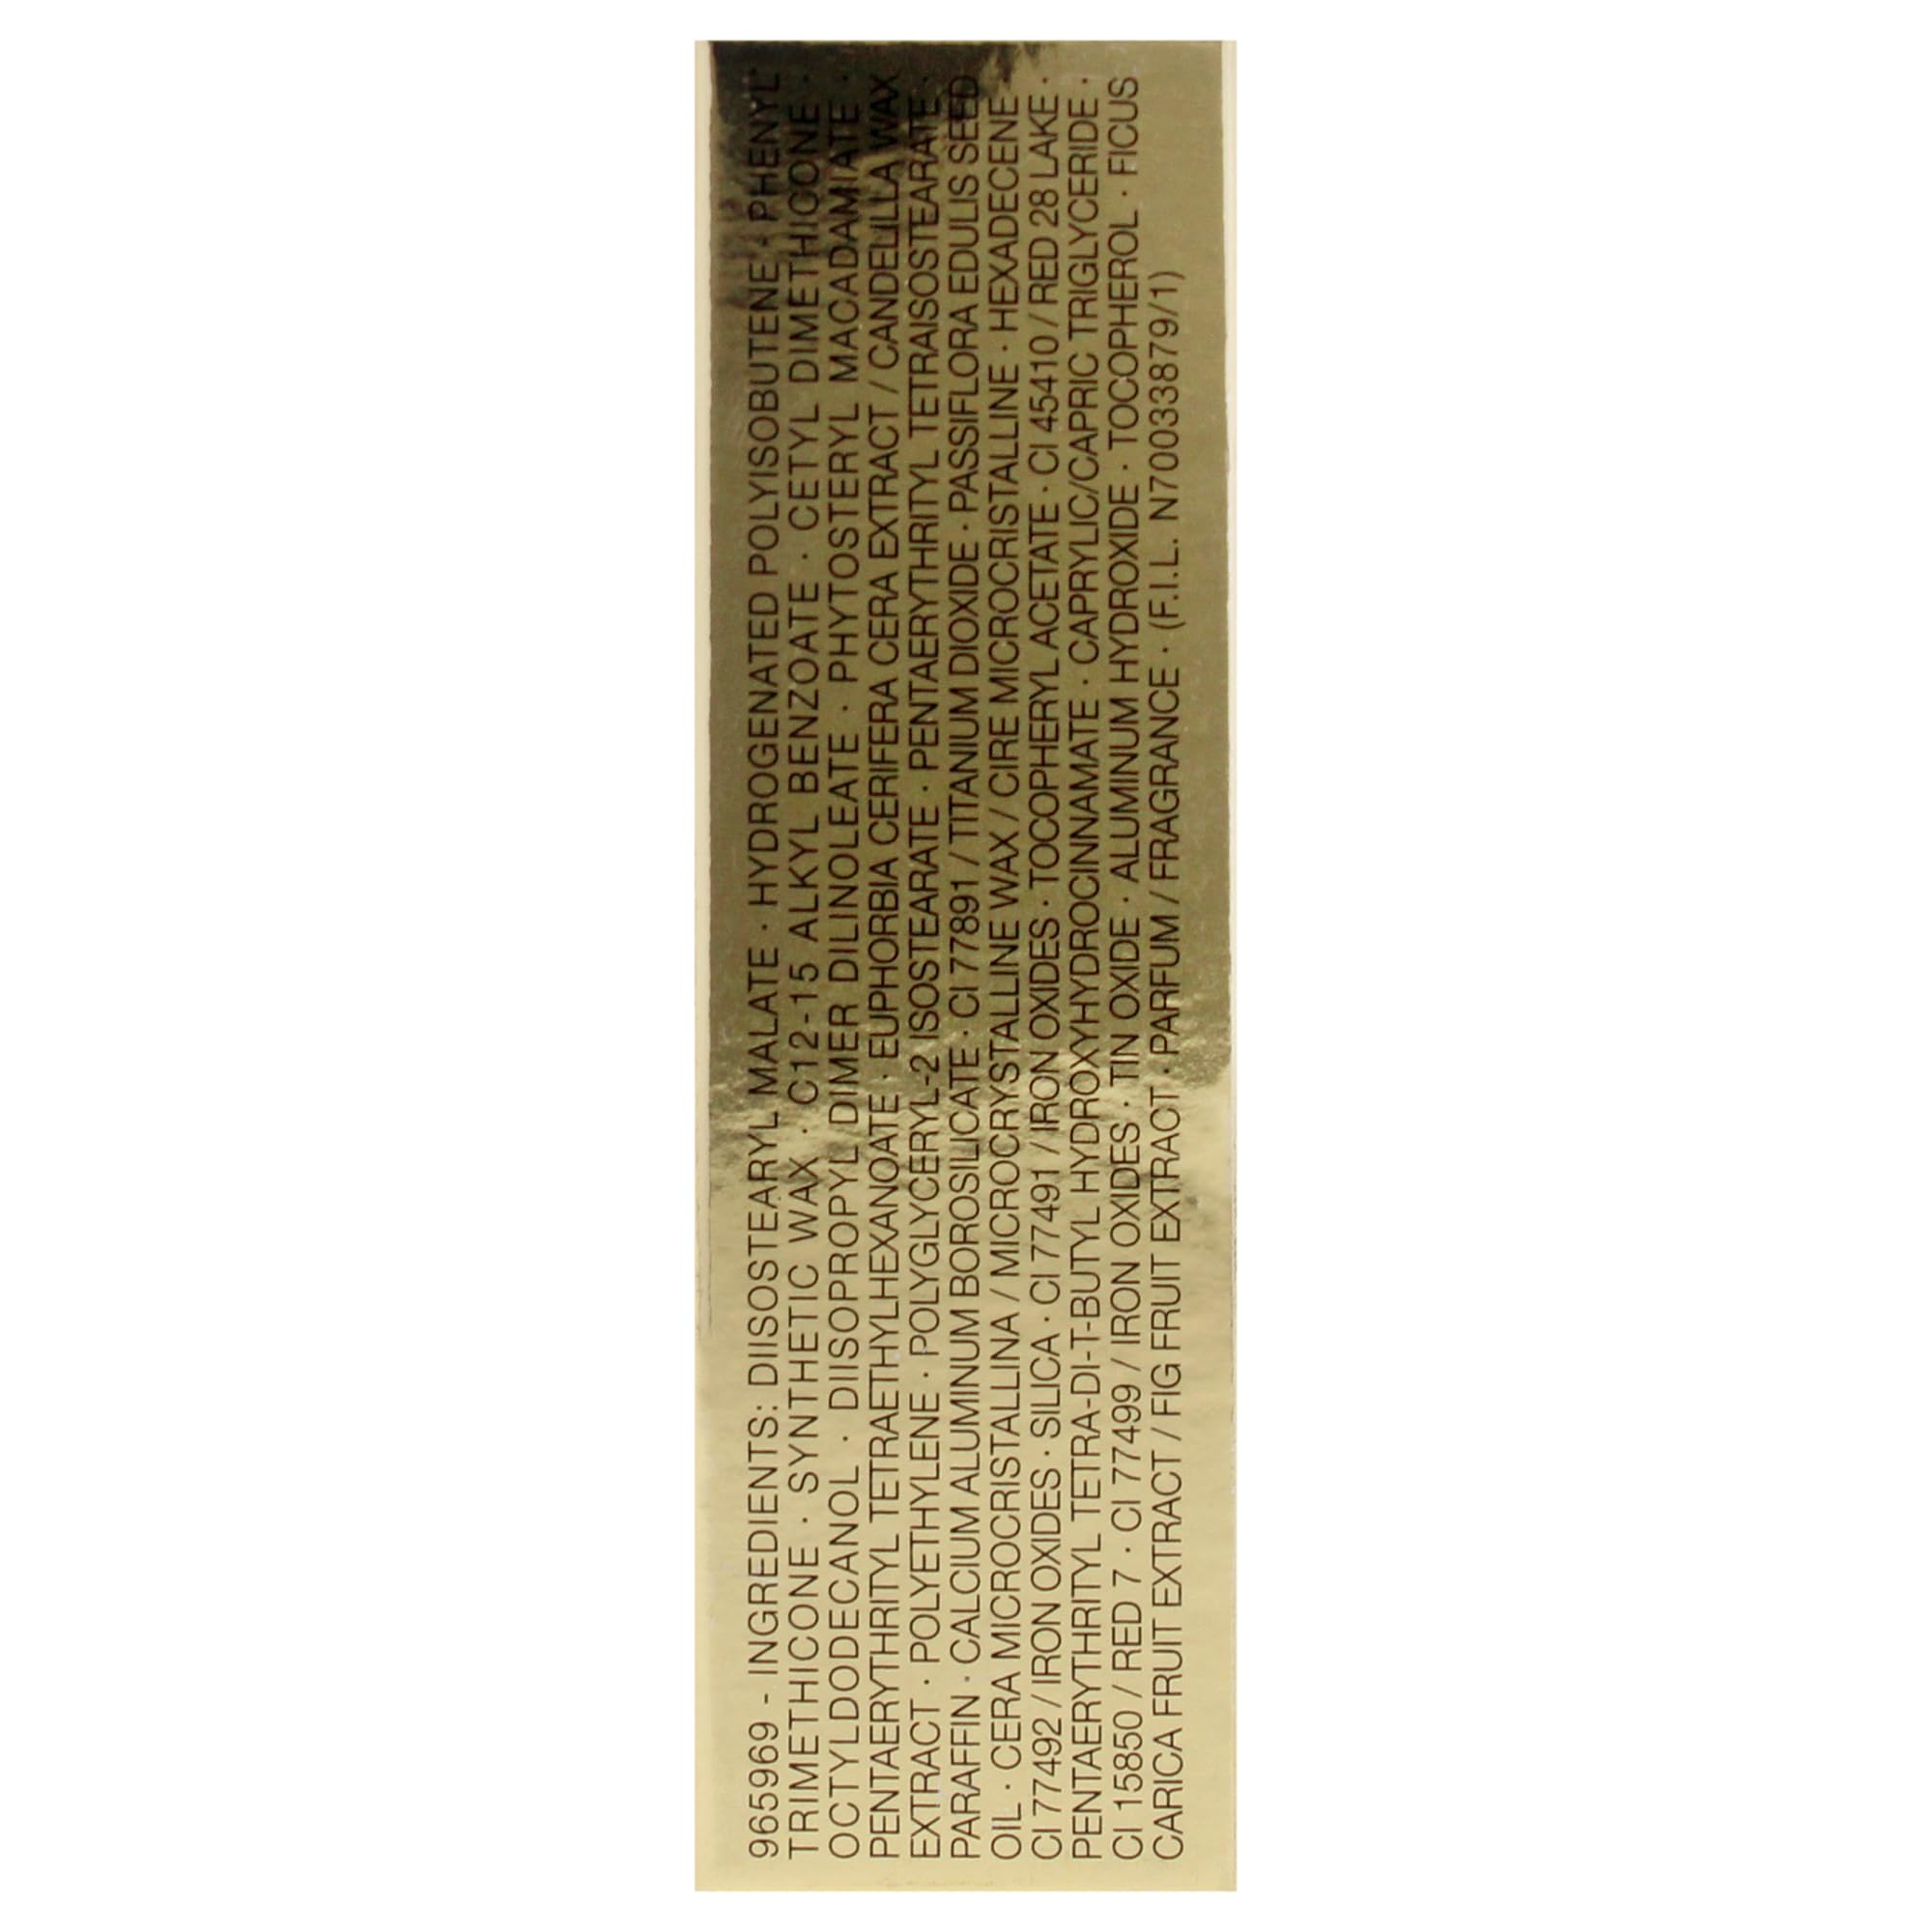 965969 - INGREDIENTS: DIISOSTEARYL MALATE · HYDROGENATED POLYISOBUTENE · PHENYL
TRIMETHICONE · SYNTHETIC WAX · C12-15 ALKYL BENZOATE · CETYL DIMETHICONE ·
OCTYLDODECANOL · DIISOPROPYL DIMER DILINOLEATE · PHYTOSTERYL MACADAMIATE ·
PENTAERYTHRITYL TETRAETHYLHEXANOATE · EUPHORBIA CERIFERA CERA EXTRACT / CANDELILLA WAX
EXTRACT · POLYETHYLENE · POLYGLYCERYL-2 ISOSTEARATE · PENTAERYTHRITYL TETRAISOSTEARATE ·
PARAFFIN · CALCIUM ALUMINUM BOROSILICATE · CI 77891 / TITANIUM DIOXIDE · PASSIFLORA EDULIS SEED
OIL · CERA MICROCRISTALLINA / MICROCRYSTALLINE WAX / CIRE MICROCRISTALLINE · HEXADECENE ·
CI 77492 / IRON OXIDES · SILICA · CI 77491 / IRON OXIDES · TOCOPHERYL ACETATE · CI 45410 / RED 28 LAKE ·
PENTAERYTHRITYL TETRA-DI-T-BUTYL HYDROXYHYDROCINNAMATE · CAPRYLIC/CAPRIC TRIGLYCERIDE ·
CI 15850 / RED 7 · CI 77499 / IRON OXIDES · TIN OXIDE · ALUMINUM HYDROXIDE · TOCOPHEROL · FICUS
CARICA FRUIT EXTRACT / FIG FRUIT EXTRACT · PARFUM / FRAGRANCE · (F.I.L. N70033879/1)